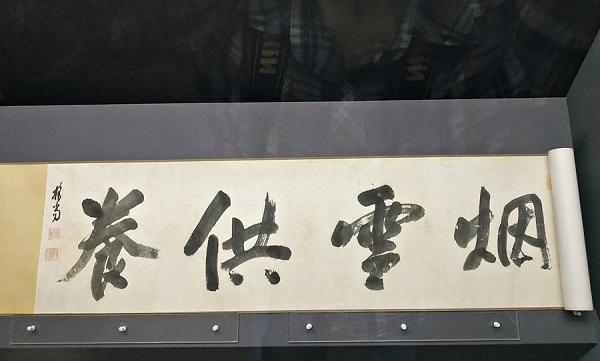 烟雲供養